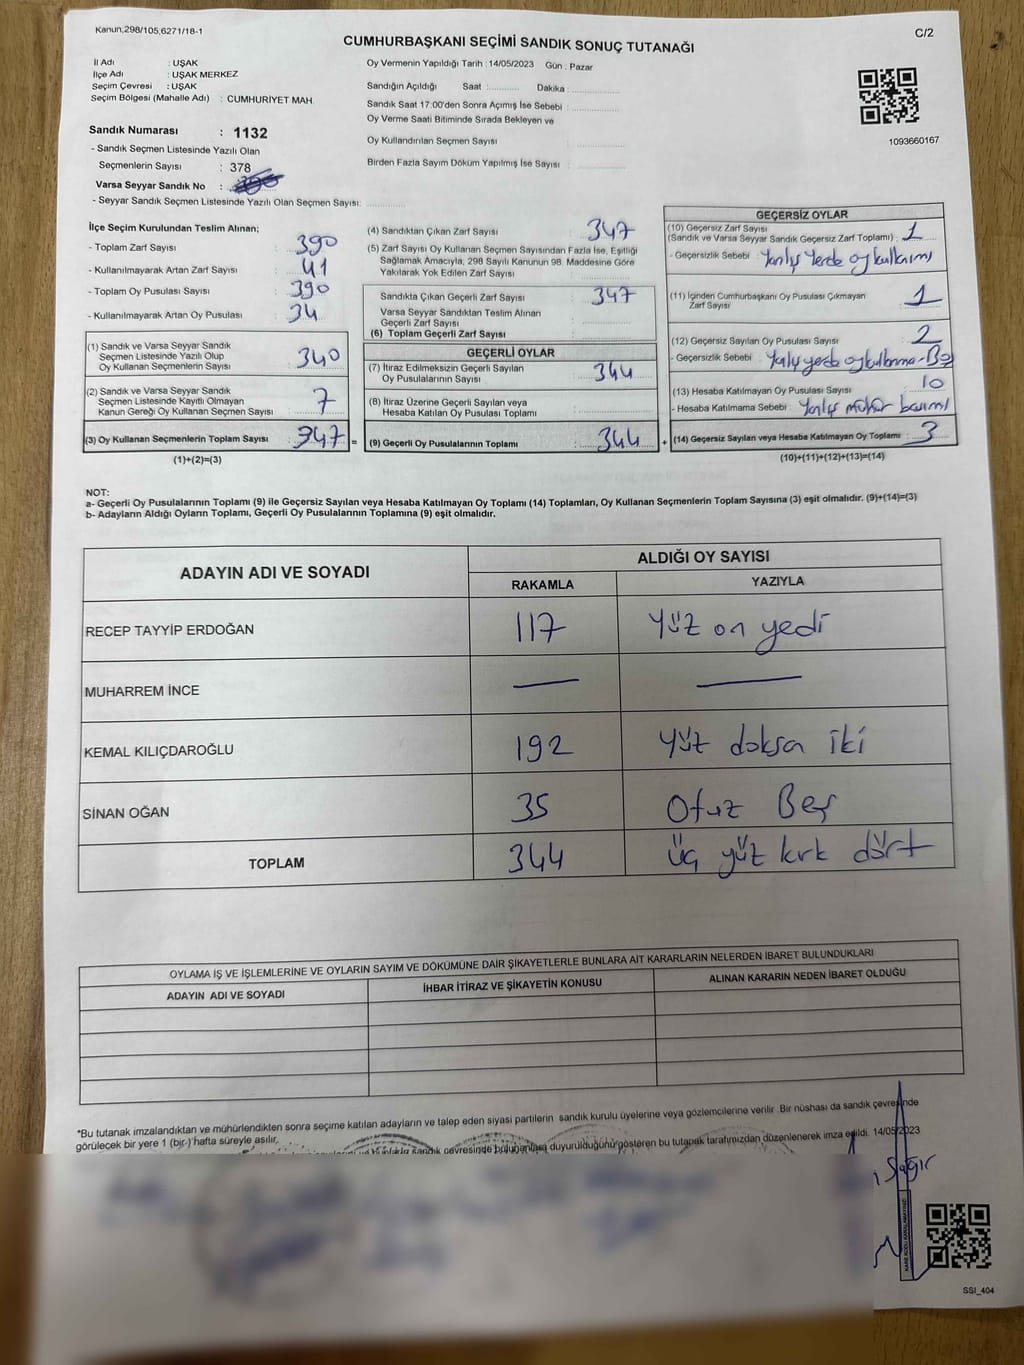 Kanun;298/105,6271/18-1
C/2
CUMHURBAŞKANI SEÇİMİ SANDIK SONUÇ TUTANAĞI
İl Adı : UŞAK
İlçe Adı : UŞAK MERKEZ
Seçim Çevresi : UŞAK
Seçim Bölgesi (Mahalle Adı) : CUMHURIYET MAH.
Sandık Numarası : 1132
- Sandık Seçmen Listesinde Yazılı Olan
Seçmenlerin Sayısı : 378
Varsa Seyyar Sandık No :
- Seyyar Sandık Seçmen Listesinde Yazılı Olan Seçmen Sayısı:
Oy Vermenin Yapıldığı Tarih : 14/05/2023 Gün : Pazar
Sandığın Açıldığı Saat : Dakika :
Sandık Saat 17:00'den Sonra Açımış İse Sebebi :
Oy Verme Saati Bitiminde Sırada Bekleyen ve
Oy Kullandırılan Seçmen Sayısı :
Birden Fazla Sayım Döküm Yapılmış İse Sayısı :
1093660167
İlçe Seçim Kurulundan Teslim Alınan;
- Toplam Zarf Sayısı : 390
- Kullanılmayarak Artan Zarf Sayısı : 41
- Toplam Oy Pusulası Sayısı : 390
- Kullanılmayarak Artan Oy Pusulası : 34
(1) Sandık ve Varsa Seyyar Sandık
Seçmen Listesinde Yazılı Olup
Oy Kullanan Seçmenlerin Sayısı : 340
(2) Sandık ve Varsa Seyyar Sandık
Seçmen Listesinde Kayıtlı Olmayan
Kanun Gereği Oy Kullanan Seçmen Sayısı : 7
(3) Oy Kullanan Seçmenlerin Toplam Sayısı : 347 =
(1)+(2)=(3)
(4) Sandıktan Çıkan Zarf Sayısı : 347
(5) Zarf Sayısı Oy Kullanan Seçmen Sayısından Fazla İse, Eşitliği
Sağlamak Amacıyla, 298 Sayılı Kanunun 98. Maddesine Göre
Yakılarak Yok Edilen Zarf Sayısı :
Sandıkta Çıkan Geçerli Zarf Sayısı : 347
Varsa Seyyar Sandıktan Teslim Alınan
Geçerli Zarf Sayısı :
(6) Toplam Geçerli Zarf Sayısı :
GEÇERLİ OYLAR
(7) İtiraz Edilmeksizin Geçerli Sayılan
Oy Pusulalarının Sayısı : 344
(8) İtiraz Üzerine Geçerli Sayılan veya
Hesaba Katılan Oy Pusulası Toplamı :
(9) Geçerli Oy Pusulalarının Toplamı : 344 +
GEÇERSİZ OYLAR
(10) Geçersiz Zarf Sayısı
(Sandık ve Varsa Seyyar Sandık Geçersiz Zarf Toplamı) : 1
- Geçersizlik Sebebi : Yanlış Yerde oy kullanımı
(11) İçinden Cumhurbaşkanı Oy Pusulası Çıkmayan
Zarf Sayısı : 1
(12) Geçersiz Sayılan Oy Pusulası Sayısı : 2
- Geçersizlik Sebebi : Yanlış yerde oy kullanma - Boş
(13) Hesaba Katılmayan Oy Pusulası Sayısı : 10
- Hesaba Katılmama Sebebi : Yanlış mühür basımı
(14) Geçersiz Sayılan veya Hesaba Katılmayan Oy Toplamı : 3
(10)+(11)+(12)+(13)=(14)
NOT:
a- Geçerli Oy Pusulalarının Toplamı (9) ile Geçersiz Sayılan veya Hesaba Katılmayan Oy Toplamı (14) Toplamları, Oy Kullanan Seçmenlerin Toplam Sayısına (3) eşit olmalıdır. (9)+(14)=(3)
b- Adayların Aldığı Oyların Toplamı, Geçerli Oy Pusulalarının Toplamına (9) eşit olmalıdır.
ADAYIN ADI VE SOYADI
ALDIĞI OY SAYISI
RAKAMLA YAZIYLA
RECEP TAYYİP ERDOĞAN 117 Yüz on yedi
MUHARREM İNCE — —
KEMAL KILIÇDAROĞLU 192 Yüz doksan iki
SİNAN OĞAN 35 Otuz Beş
TOPLAM 344 üç yüz kırk dört
OYLAMA İŞ VE İŞLEMLERİNE VE OYLARIN SAYIM VE DÖKÜMÜNE DAİR ŞİKAYETLERLE BUNLARA AİT KARARLARIN NELERDEN İBARET BULUNDUKLARI
ADAYIN ADI VE SOYADI İHBAR İTİRAZ VE ŞİKAYETİN KONUSU ALINAN KARARIN NEDEN İBARET OLDUĞU
*Bu tutanak imzalandıktan ve mühürlendikten sonra seçime katılan adayların ve talep eden siyasi partilerin sandık kurulu üyelerine veya gözlemcilerine verilir .Bir nüshası da sandık çevresinde
görülecek bir yere 1 (bir ) hafta süreyle asılır.
sandık çevresinde bulunanlara duyurulduğunu gösteren bu tutanak tarafımızdan düzenlenerek imza edildi. 14/05/2023
Sağır
SSI_404